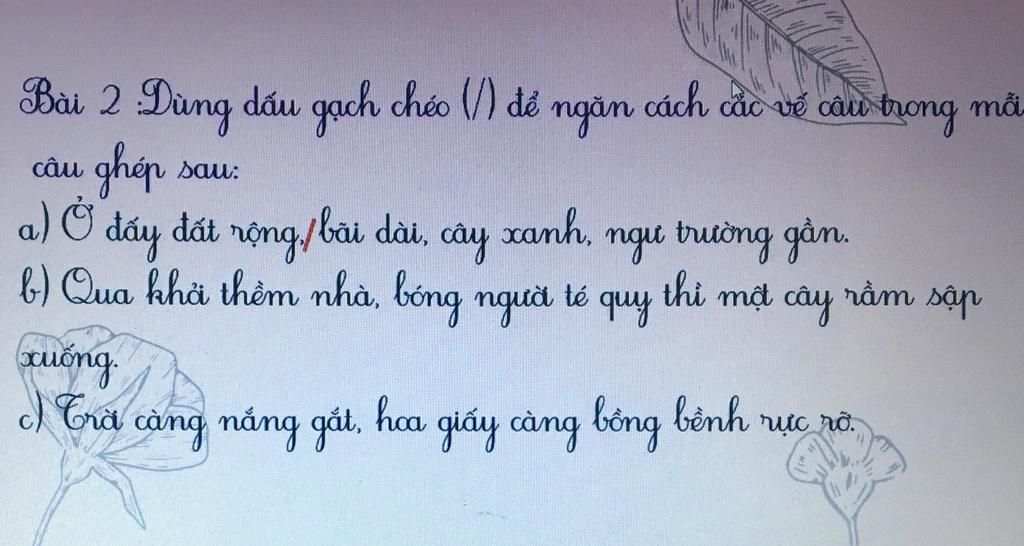 Bài 2 :Dùng dấu gạch chéo (/) để ngăn cách các vế câu trong mỗi
câu ghép sau:
a) Ở đấy đất rộng,/bãi dài, cây xanh, ngư trường gần.
b) Qua khỏi thềm nhà, bóng người té quỵ thì một cây rầm sập
xuống.
c) Trời càng nắng gắt, hoa giấy càng bồng bềnh rực rỡ.